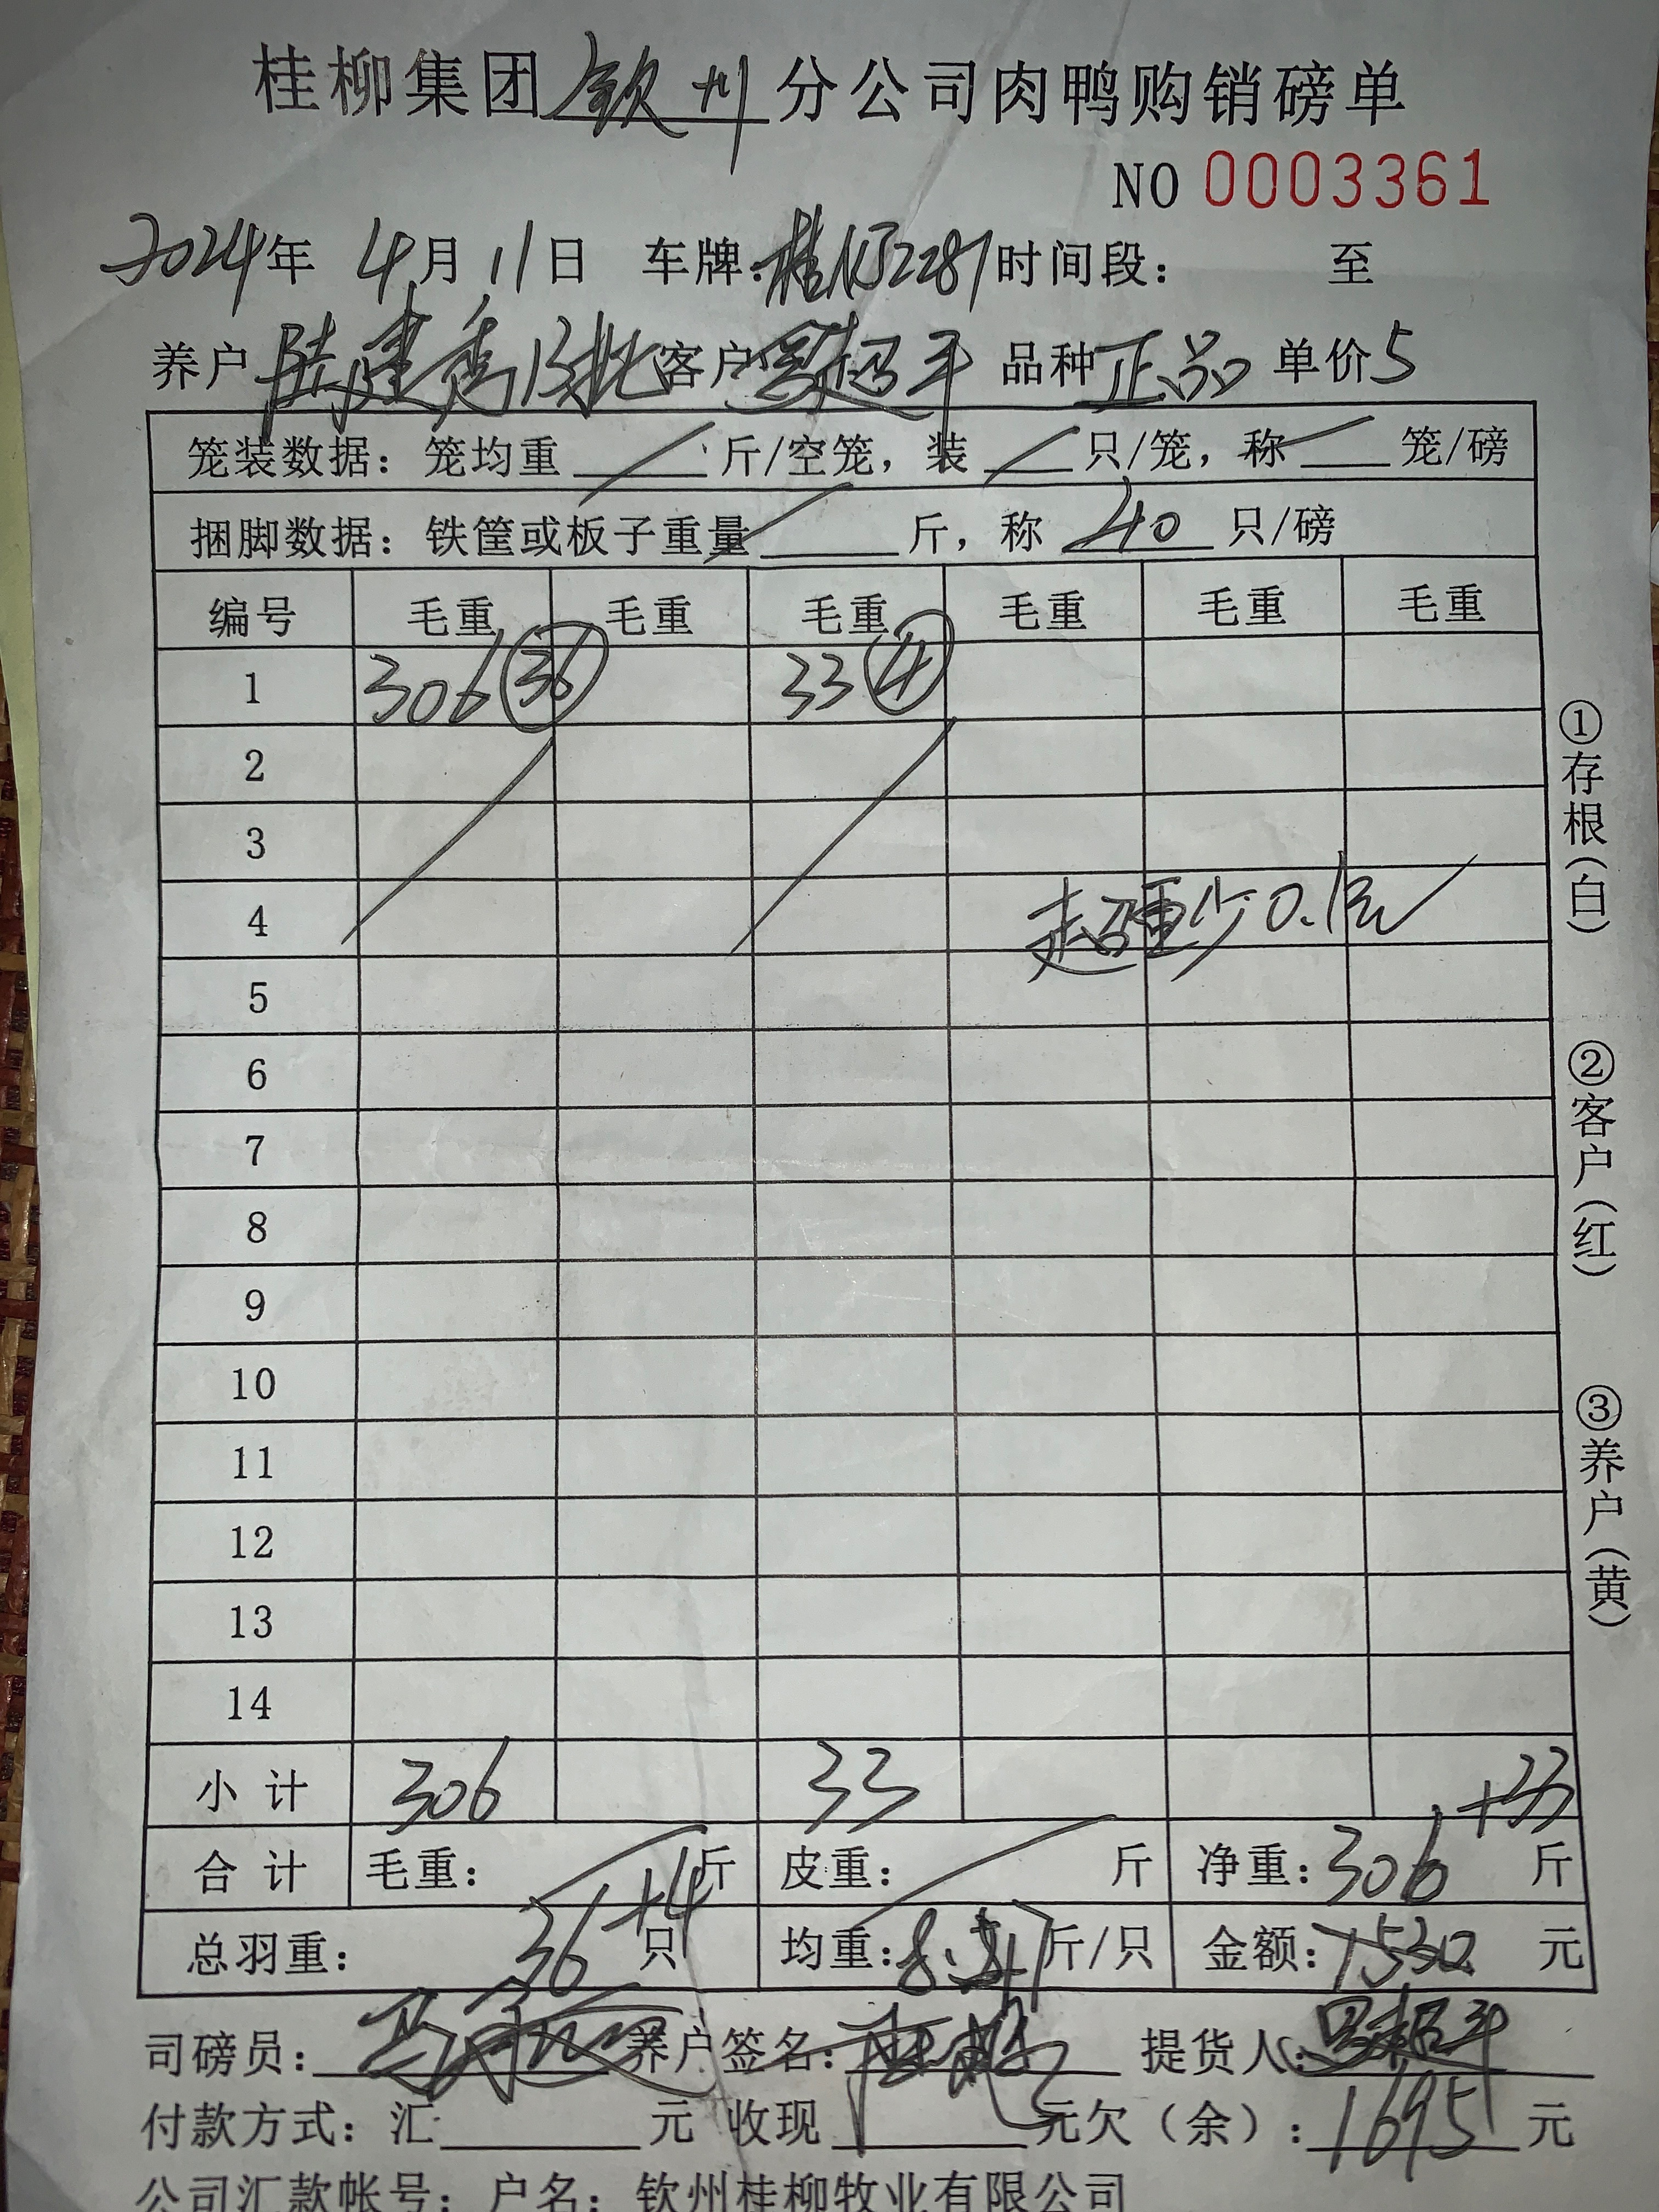 桂柳集团钦州分公司肉鸭购销磅单
NO 0003361
2024年 4月 11日 车牌: 时间段: 至
养户 陆建秀13批 客户 品种 正品 单价 5
笼装数据: 笼均重 斤/空笼, 装 只/笼, 称 笼/磅
捆脚数据: 铁筐或板子重量 斤, 称 40 只/磅
编号 毛重 毛重 毛重 毛重 毛重 毛重
1 306 36 33 4
2
3
4 超重少0.1元
5
6
7
8
9
10
11
12
13
14
小计 306 33 +33
合计 毛重: 斤 皮重: 斤 净重: 306 斤
总羽重: 36+4 只 均重: 斤/只 金额: 1530 元
司磅员: 养户签名: 提货人:
付款方式: 汇 元 收现 元欠(余): 1695 元
公司汇款帐号: 户名: 钦州桂柳牧业有限公司
①存根(白)
②客户(红)
③养户(黄)